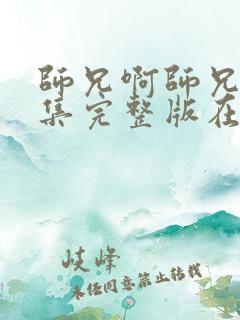 師兄啊師兄
集完整版在
岐峰
未经同意禁止转载